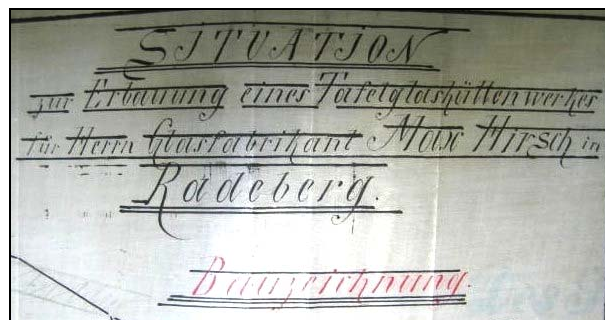 SITUATION
zur Erbauung eines Tafelglashüttenwerkes
für Herrn Glasfabrikant Max Hirsch in
Radeberg.
Bauzeichnung.